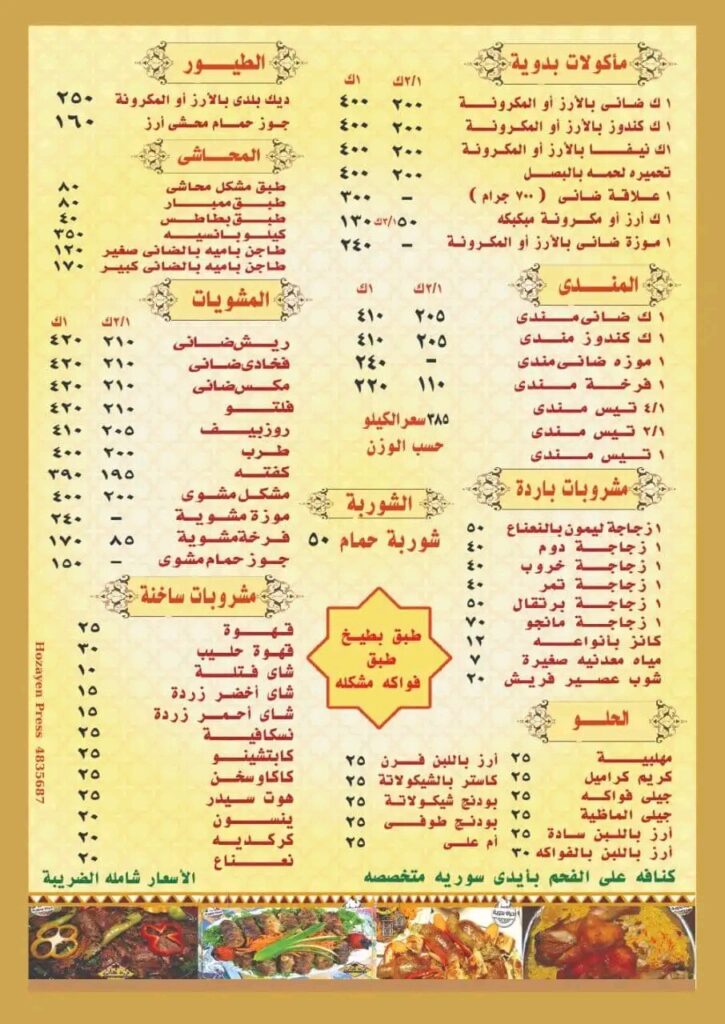 مأكولات بدوية
٢/١ك ١ك
١ ك ضانى بالأرز أو المكرونة ٢٠٠ ٤٠٠
١ ك كندوز بالأرز أو المكرونة ٢٠٠ ٤٠٠
١ك نيفا بالأرز أو المكرونة ٢٠٠ ٤٠٠
تحميره لحمه بالبصل ٢٠٠ ٤٠٠
١ علاقة ضانى ( ٧٠٠ جرام ) – ٣٠٠
١ ك أرز أو مكرونة مبكبكه ٢/١ك ٥٠ ١٣٠
١ موزة ضانى بالأرز أو المكرونة – ٢٤٠
المندى
٢/١ك ١ك
١ ك ضانى مندى ٢٠٥ ٤١٠
١ ك كندوز مندى ٢٠٥ ٤١٠
١ موزه ضانى مندى – ٢٤٠
١ فرخة مندى ١١٠ ٢٢٠
٤/١ تيس مندى
٢/١ تيس مندى
١ تيس مندى
٣٨٥ سعر الكيلو
حسب الوزن
مشروبات باردة
١ زجاجة ليمون بالنعناع ٥٠
١ زجاجة دوم ٤٠
١ زجاجة خروب ٤٠
١ زجاجة تمر ٤٠
١ زجاجة برتقال ٥٠
١ زجاجة مانجو ٧٠
كانز بأنواعه ١٢
مياه معدنيه صغيرة ٧
شوب عصير فريش ٢٠
الشوربة
شوربة حمام ٥٠
طبق بطيخ
طبق
فواكه مشكله
الحلو
مهلبية ٢٥
كريم كراميل ٢٥
جيلى فواكه ٢٥
جيلى الماظية ٢٥
أرز باللبن سادة ٢٥
أرز باللبن بالفواكه ٣٠
أرز باللبن فرن ٢٥
كاستر بالشيكولاتة ٢٥
بودنج شيكولاتة ٢٥
بودنج طوفى ٢٥
أم على ٢٥
كنافه على الفحم بأيدى سوريه متخصصه
الطيور
ديك بلدى بالأرز أو المكرونة ٢٥٠
جوز حمام محشى أرز ١٦٠
المحاشى
طبق مشكل محاشى ٨٠
طبق ممبار ٨٠
طبق بطاطس ٤٠
كيلو بانسيه ٣٥٠
طاجن باميه بالضانى صغير ١٢٠
طاجن باميه بالضانى كبير ١٧٠
المشويات
٢/١ك ١ك
ريش ضانى ٢١٠ ٤٢٠
فخادى ضانى ٢١٠ ٤٢٠
مكس ضانى ٢١٠ ٤٢٠
فلتو ٢١٠ ٤٢٠
روزبيف ٢٠٥ ٤١٠
طرب ٢٠٠ ٤٠٠
كفته ١٩٥ ٣٩٠
مشكل مشوى ٢٠٠ ٤٠٠
موزة مشوية – ٢٤٠
فرخة مشوية ٨٥ ١٧٠
جوز حمام مشوى – ١٥٠
مشروبات ساخنة
قهوة ٢٥
قهوة حليب ٣٠
شاى فتلة ١٠
شاى أخضر زردة ١٥
شاى أحمر زردة ١٥
نسكافية ٢٥
كابتشينو ٢٥
كاكاو سخن ٢٥
هوت سيدر ٢٥
ينسون ٢٠
كركديه ٢٠
نعناع ٢٠
الأسعار شامله الضريبة
Hozayen Press 4835687